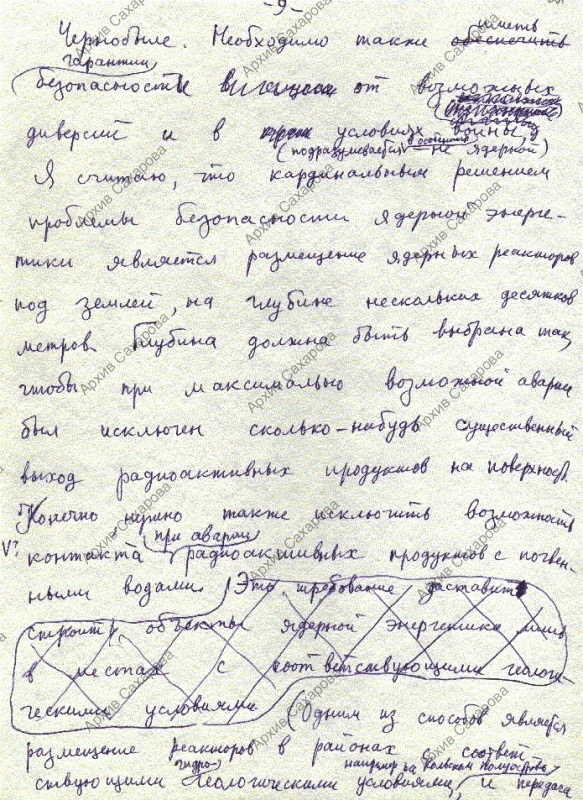 - 9 -
Чернобыле. Необходимо также иметь
гарантии
безопасности от возможных
диверсий и в условиях войны,
(подразумевается в особенности не ядерной)
Я считаю, что кардинальным решением
проблемы безопасности ядерной энерге-
тики является размещение ядерных реакторов
под землей, на глубине нескольких десятков
метров. Глубина должна быть выбрана так,
чтобы при максимально возможной аварии
был исключен сколько-нибудь существенный
выход радиоактивных продуктов на поверхность.
Конечно нужно также исключить возможность
V? контакта при аварии радиоактивных продуктов с почвен-
ными водами. Это требование заставит
строить объекты ядерной энергетики лишь
в местах с соответствующими геологи-
ческими условиями (Одним из способов является
размещение реакторов в районах с соответ-
ствующими гидро-геологическими условиями, например на Кольском полуострове, и передача
Архив Сахарова